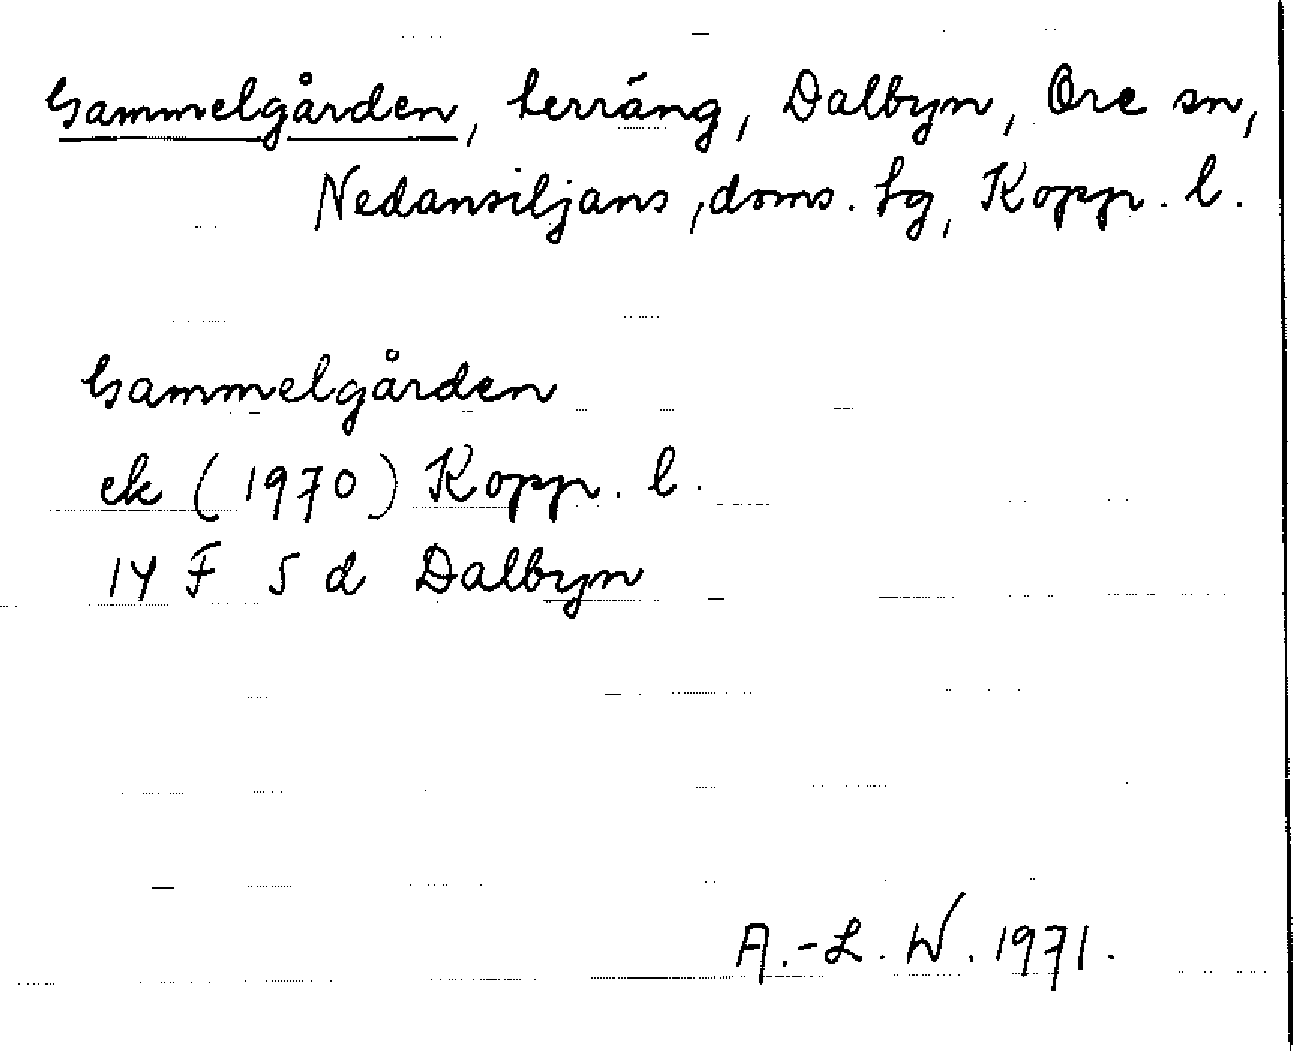 Gammelgården, terräng, Dalbyn, Ore sn,
Nedansiljans, doms. tg, Kopp. l.
Gammelgården
ek (1970) Kopp. l.
14 F 5 d Dalbyn
A.-L. W. 1971.